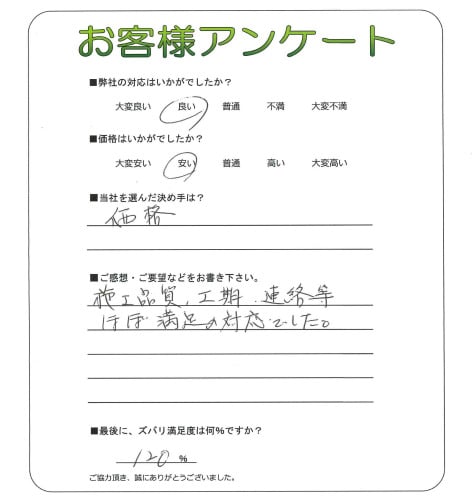 お客様アンケート
■弊社の対応はいかがでしたか？
大変良い 良い 普通 不満 大変不満
■価格はいかがでしたか？
大変安い 安い 普通 高い 大変高い
■当社を選んだ決め手は？
価格
■ご感想・ご要望などをお書き下さい。
施工品質、工期、連絡等
ほぼ満足の対応でした。
■最後に、ズバリ満足度は何％ですか？
120 %
ご協力頂き、誠にありがとうございました。